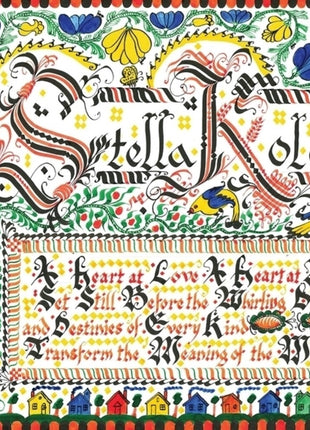 Stella Kol
A Heart at Love A Heart at
Set Still Before the Whirling
and Destinies of Every Kind
Transform the Meaning of the